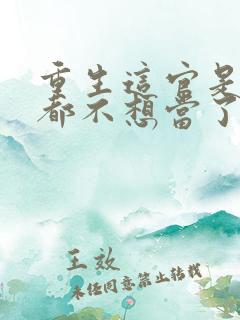 重生這官是
都不想當了
王效
未经同意禁止转载